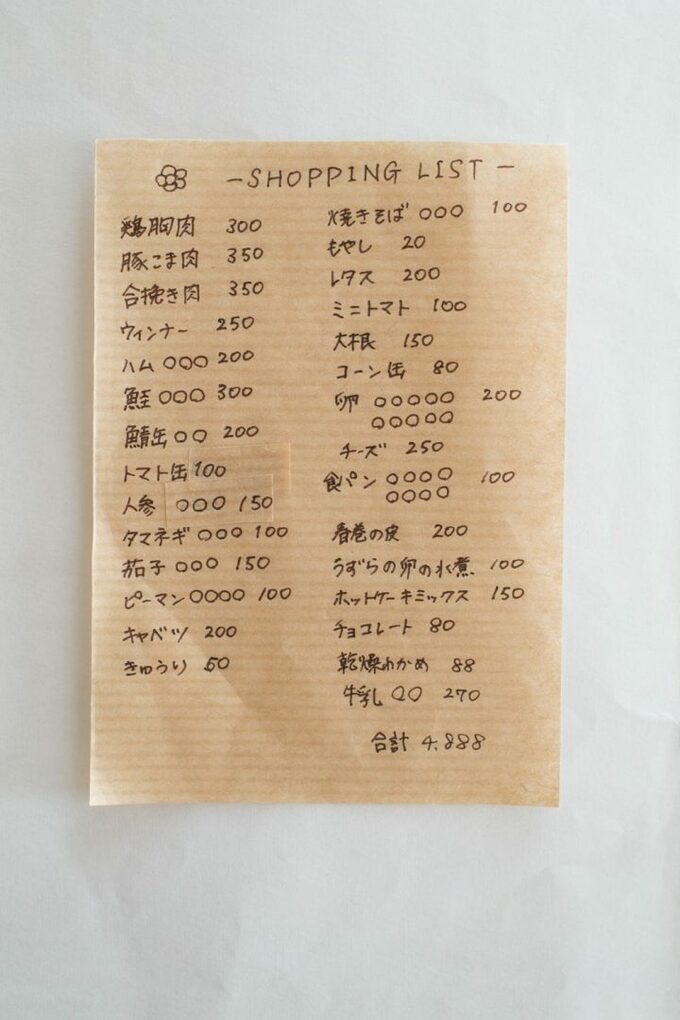 -SHOPPING LIST-
鶏胸肉 300
豚こま肉 350
合挽き肉 350
ウィンナー 250
ハム ○○○ 200
鮭 ○○○ 300
鯖缶 ○○ 200
トマト缶 100
人参 ○○○ 150
タマネギ ○○○ 100
茄子 ○○○ 150
ピーマン ○○○○ 100
キャベツ 200
きゅうり 50
焼きそば ○○○ 100
もやし 20
レタス 200
ミニトマト 100
大根 150
コーン缶 80
卵 ○○○○○ 200
○○○○○
チーズ 250
食パン ○○○○ 100
○○○○
春巻の皮 200
うずらの卵の水煮 100
ホットケーキミックス 150
チョコレート 80
乾燥わかめ 88
牛乳 ○○ 270
合計 4,888